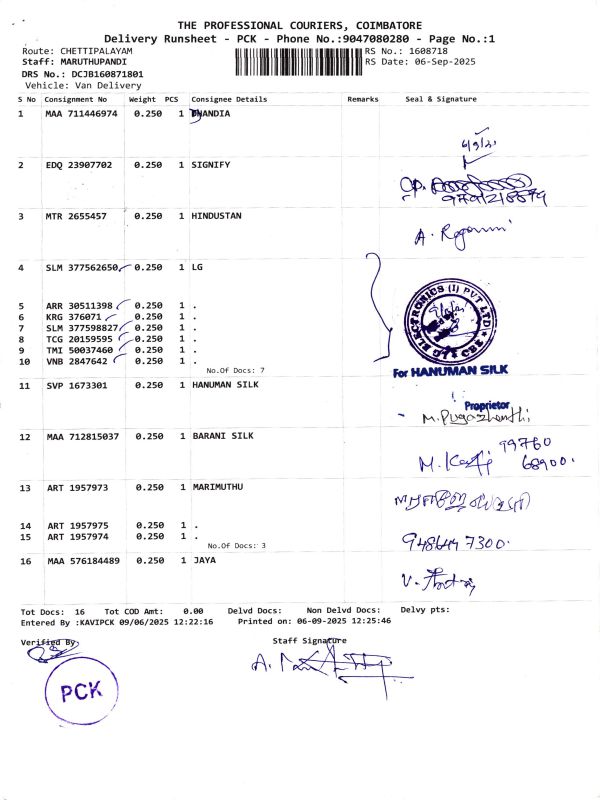 THE PROFESSIONAL COURIERS, COIMBATORE
Delivery Runsheet - PCK - Phone No.:9047080280 - Page No.:1
Route: CHETTIPALAYAM RS No.: 1608718
Staff: MARUTHUPANDI RS Date: 06-Sep-2025
DRS No.: DCJB160871801
Vehicle: Van Delivery
S No Consignment No Weight PCS Consignee Details Remarks Seal & Signature
1 MAA 711446974 0.250 1 DHANDIA
2 EDQ 23907702 0.250 1 SIGNIFY
3 MTR 2655457 0.250 1 HINDUSTAN
4 SLM 377562650 0.250 1 LG
5 ARR 30511398 0.250 1 .
6 KRG 376071 0.250 1 .
7 SLM 377598827 0.250 1 .
8 TCG 20159595 0.250 1 .
9 TMI 50037460 0.250 1 .
10 VNB 2847642 0.250 1 .
No.Of Docs: 7
ELECTRONICS (I) PVT LTD
CBE
For HANUMAN SILK
11 SVP 1673301 0.250 1 HANUMAN SILK
Proprietor
12 MAA 712815037 0.250 1 BARANI SILK
99760
68900.
13 ART 1957973 0.250 1 MARIMUTHU
14 ART 1957975 0.250 1 .
15 ART 1957974 0.250 1 .
No.Of Docs: 3
16 MAA 576184489 0.250 1 JAYA
Tot Docs: 16 Tot COD Amt: 0.00 Delvd Docs: Non Delvd Docs: Delvy pts:
Entered By :KAVIPCK 09/06/2025 12:22:16 Printed on: 06-09-2025 12:25:46
Verified By
Staff Signature
PCK